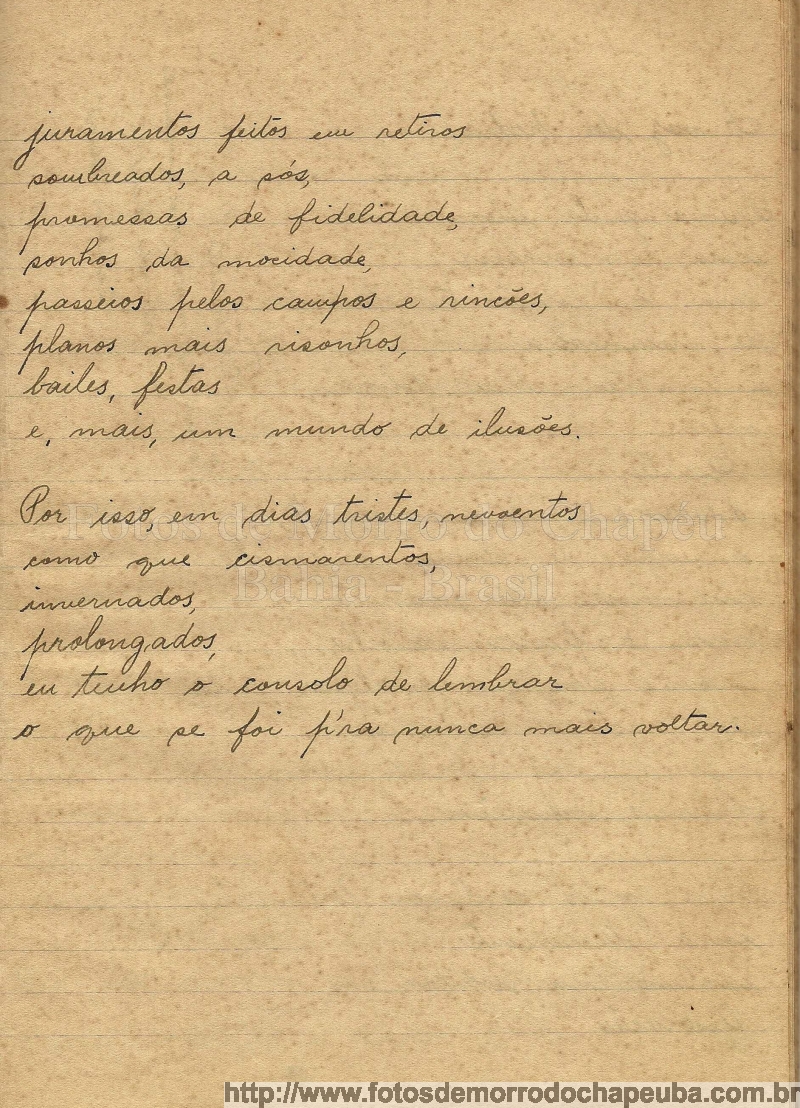 juramentos feitos em retiros
sombreados, a sós,
promessas de fidelidade,
sonhos da mocidade,
passeios pelos campos e rincões,
planos mais risonhos,
bailes, festas
e, mais, um mundo de ilusões.
Por isso, em dias tristes, nevoentos
como que cismarentos,
invernados,
prolongados,
eu tenho o consolo de lembrar
o que se foi p'ra nunca mais voltar.
Fotos de Morro do Chapéu
Bahia - Brasil
http://www.fotosdemorrodochapeuba.com.br